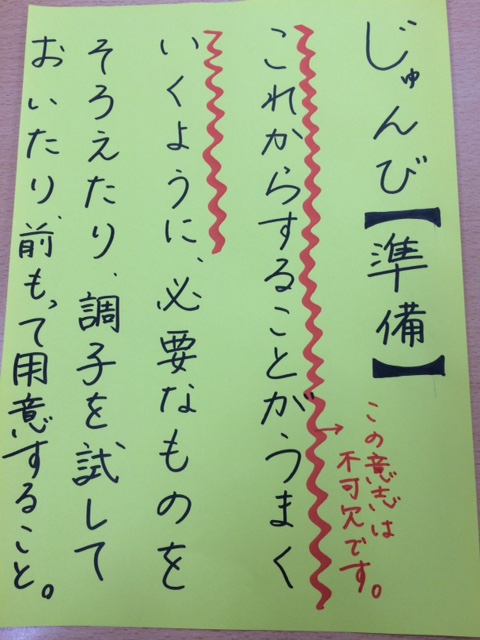 じゅんび【準備】
この意志は
不可欠です。
これからすることがうまく
いくように、必要なものを
そろえたり、調子を試して
おいたり、前もって用意すること。